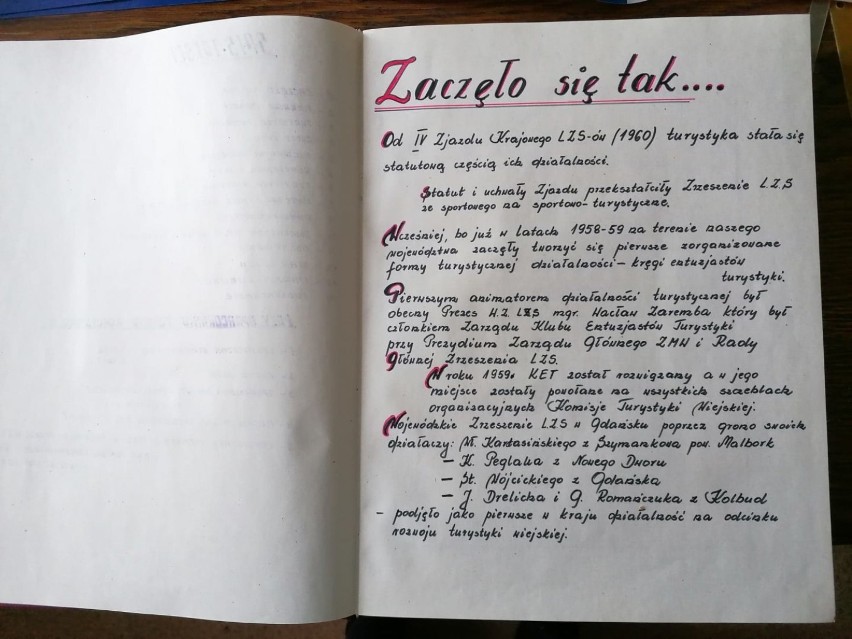 Zaczęło się tak....
Od IV Zjazdu Krajowego LZS-ów (1960) turystyka stała się
statutową częścią ich działalności.
Statut i uchwały Zjazdu przekształciły Zrzeszenie L.Z.S
ze sportowego na sportowo-turystyczne.
Wcześniej, bo już w latach 1958-59 na terenie naszego
województwa zaczęły tworzyć się pierwsze zorganizowane
formy turystycznej działalności - kręgi entuzjastów
turystyki.
Pierwszym animatorem działalności turystycznej był
obecny Prezes W.Z. LZS mgr. Wacław Zaremba który był
członkiem Zarządu Klubu Entuzjastów Turystyki
przy Prezydium Zarządu Głównego ZMW i Rady
Głównej Zrzeszenia LZS.
W roku 1959r. KET został rozwiązany a w jego
miejsce zostały powołane na wszystkich szczeblach
organizacyjnych Komisje Turystyki Wiejskiej.
Wojewódzkie Zrzeszenie LZS w Gdańsku poprzez grono swoich
działaczy: M. Kartasińskiego z Szymankowa pow. Malbork
- K. Peglaua z Nowego Dworu
- St. Wójcickiego z Gdańska
- J. Drelicha i G. Romańczuka z Kolbud
- podjęło jako pierwsze w kraju działalność na odcinku
rozwoju turystyki wiejskiej.